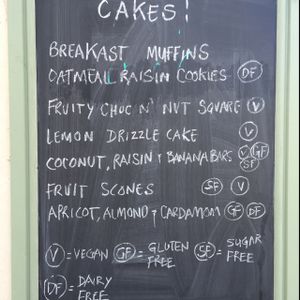 CAKES!
BREAKAST MUFFINS
OATMEAL RAISIN COOKIES DF
FRUITY CHOC N' NUT SQUARE V
LEMON DRIZZLE CAKE V
COCONUT, RAISIN + BANANA BARS V GF SF
FRUIT SCONES SF V
APRICOT, ALMOND + CARDAMOM GF DF
V = VEGAN GF = GLUTEN FREE SF = SUGAR FREE
DF = DAIRY FREE